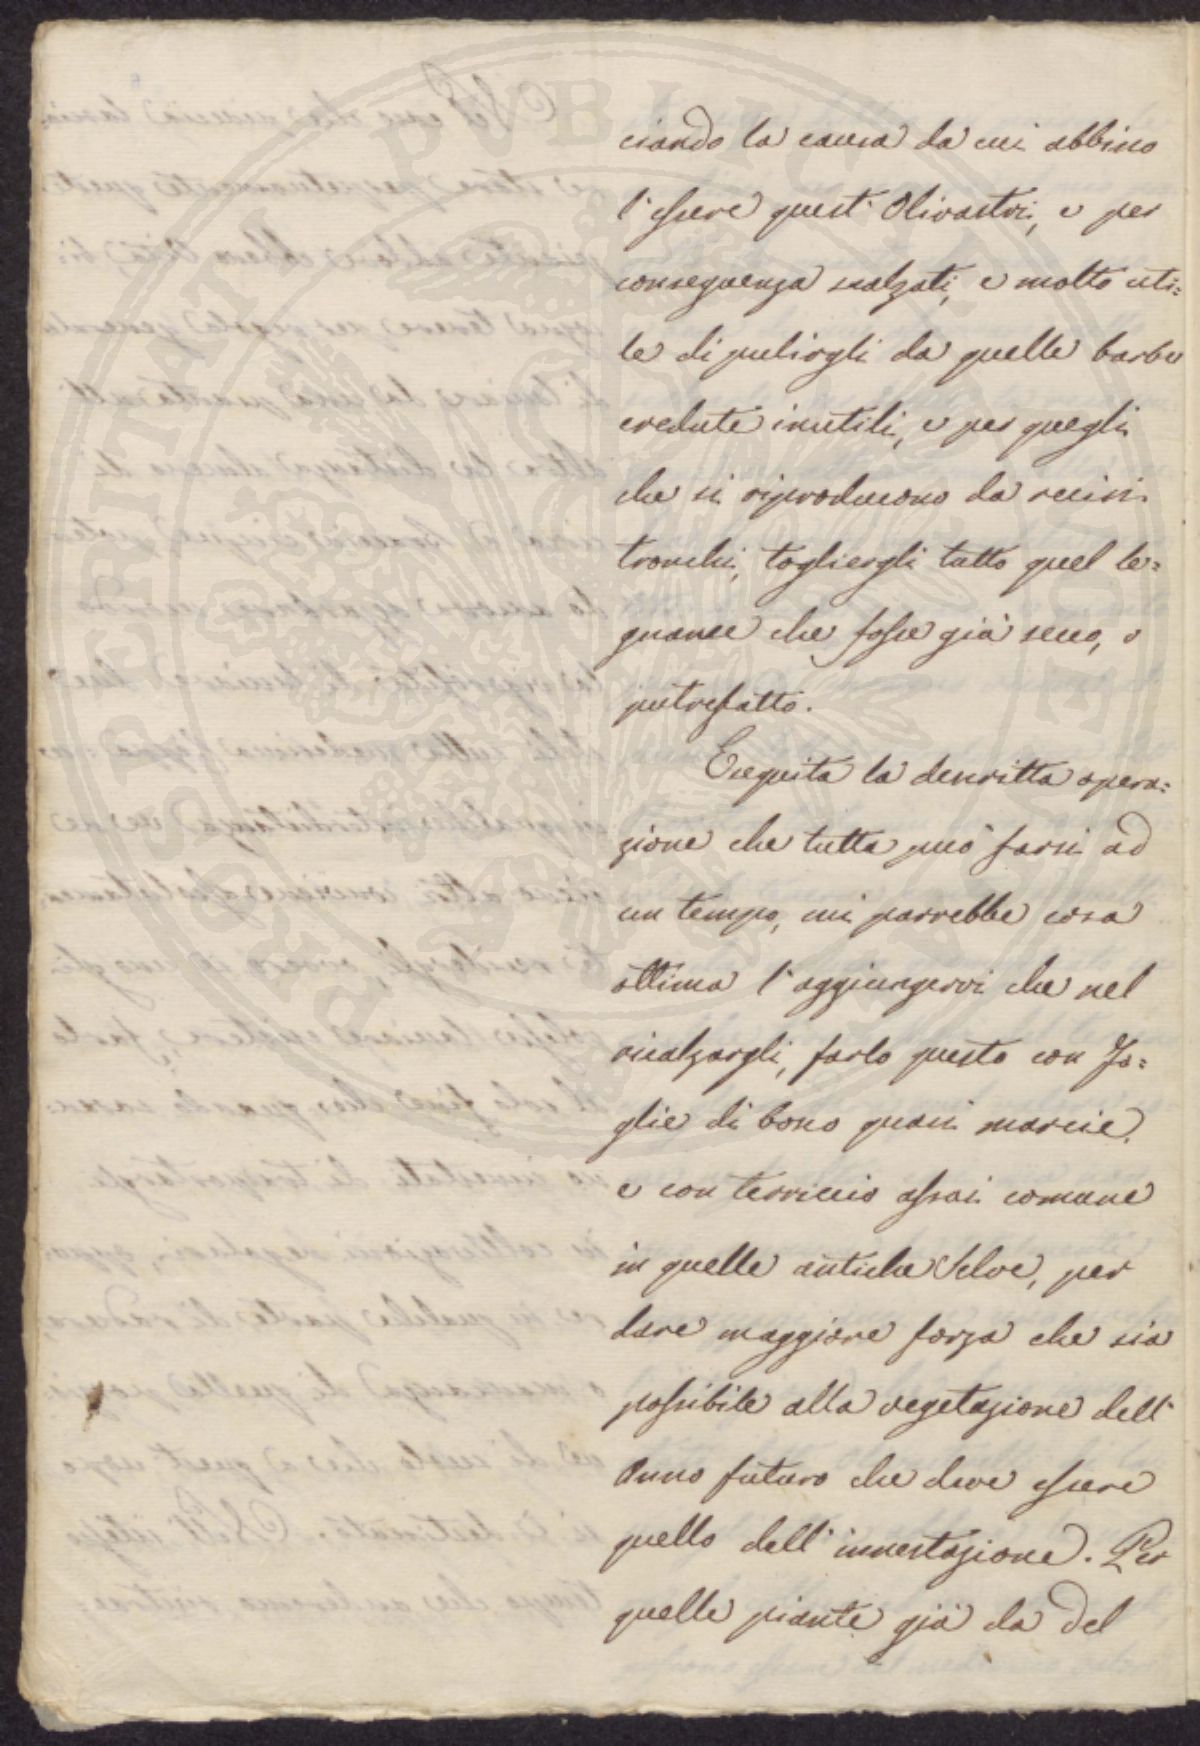 ciando la causa da cui abbino
l'essere quest'Olivastri, e per
conseguenza scalzati, e molto uti=
le di pulirgli da quelle barbe
credute inutili, e per quegli
che si riproducono da recisi
tronchi, togliergli tutto quel le=
gname che fosse già secco, o
putrefatto.
Eseguita la descritta opera=
zione che tutta può farsi ad
un tempo, mi parrebbe cosa
ottima l'aggiungervi che nel
rincalzargli, farlo questo con Fo=
glie di bosco quasi marcie,
e con terriccio assai comune
in quelle antiche Selve, per
dare maggiore forza che sia
possibile alla vegetazione dell'
Anno futuro che deve essere
quello dell'innestazione. Per
quelle piante già da del